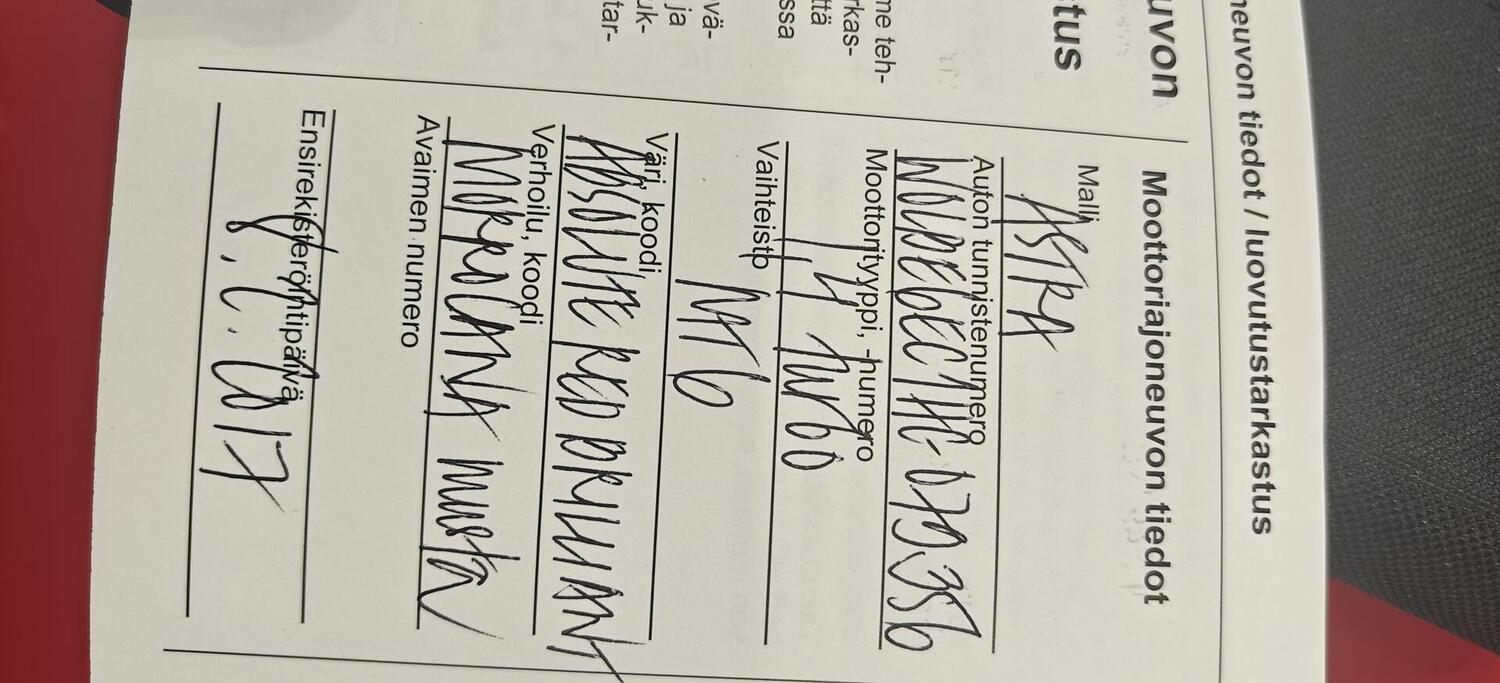 neuvon tiedot / luovutustarkastus
uvon
tus
me teh-
rkas-
ttä
ssa
vä-
ja
uk-
tar-
Moottoriajoneuvon tiedot
Malli
ASTRA
Auton tunnistenumero
W0LBE6EC1HG079356
Moottorityyppi, -numero
1,4 turbo
Vaihteisto
MT6
Väri, koodi
ABSOLUTE RED BRILLIANT
Verhoilu, koodi
MORROCANA musta
Avaimen numero
Ensirekisteröintipäivä